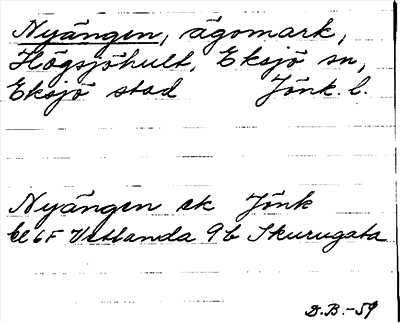 Nyängen, ägomark,
Högsjöhult, Eksjö sn,
Eksjö stad Jönk. l.
Nyängen ek Jönk
bl 6F Vetlanda 9b Skurugata
D.B.-59